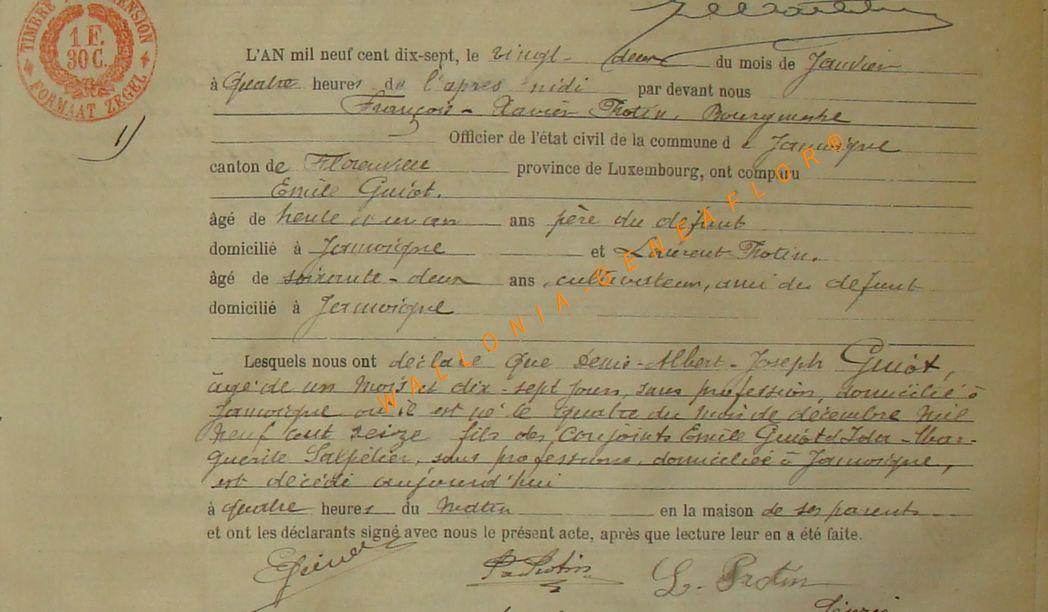 TIMBRE DIMENSION
1 F.
30 C.
FORMAAT ZEGEL
1)
L'AN mil neuf cent dix-sept, le vingt-deux du mois de Janvier
à quatre heures de l'après midi par devant nous
François-Xavier Protin, Bourgmestre
Officier de l'état civil de la commune d e Jamoigne
canton de Florenville province de Luxembourg, ont comparu
Emile Guiot.
âgé de trente et un an ans père du défunt
domicilié à Jamoigne et Laurent Protin.
âgé de soixante-deux ans, cultivateur, ami du défunt
domicilié à Jamoigne
Lesquels nous ont déclaré que Denis-Albert-Joseph Guiot,
âgé de un mois et dix-sept jours, sans profession, domicilié à
Jamoigne où il est né le quatre du mois de décembre mil
neuf cent seize fils des conjoints Emile Guiot et Ida-Mar-
guerite Salpétier, sans professions, domiciliés à Jamoigne,
est décédé aujourd'hui
à quatre heures du matin en la maison de ses parents
et ont les déclarants signé avec nous le présent acte, après que lecture leur en a été faite.
EGuiot L. Protin
WALLONIA-GENEAFLOR®